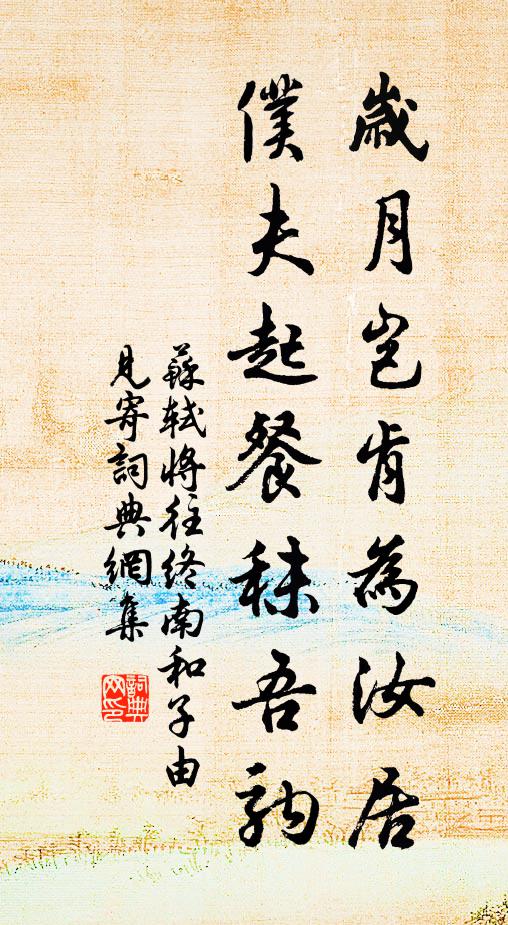 歲月豈肯為汝居
僕夫起餐秣吾駒
蘇軾將往終南和子由
見寄詞典網集
詞典
网印